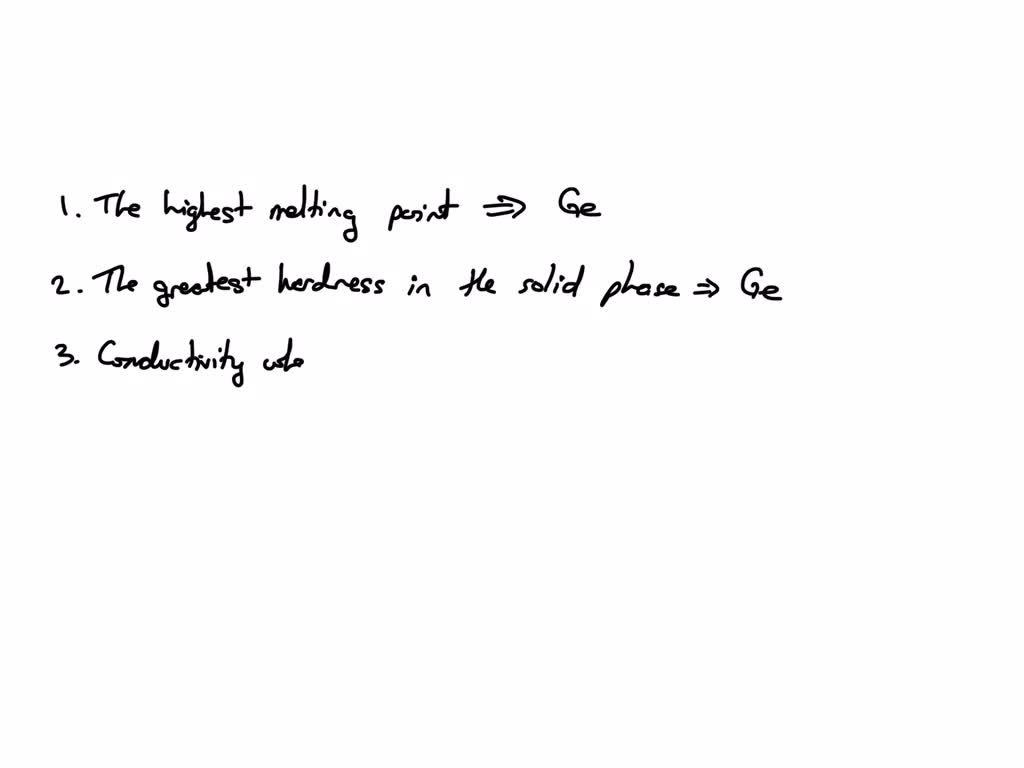 1. The highest melting point ⇒ Ge
2. The greatest hardness in the solid phase ⇒ Ge
3. Conductivity